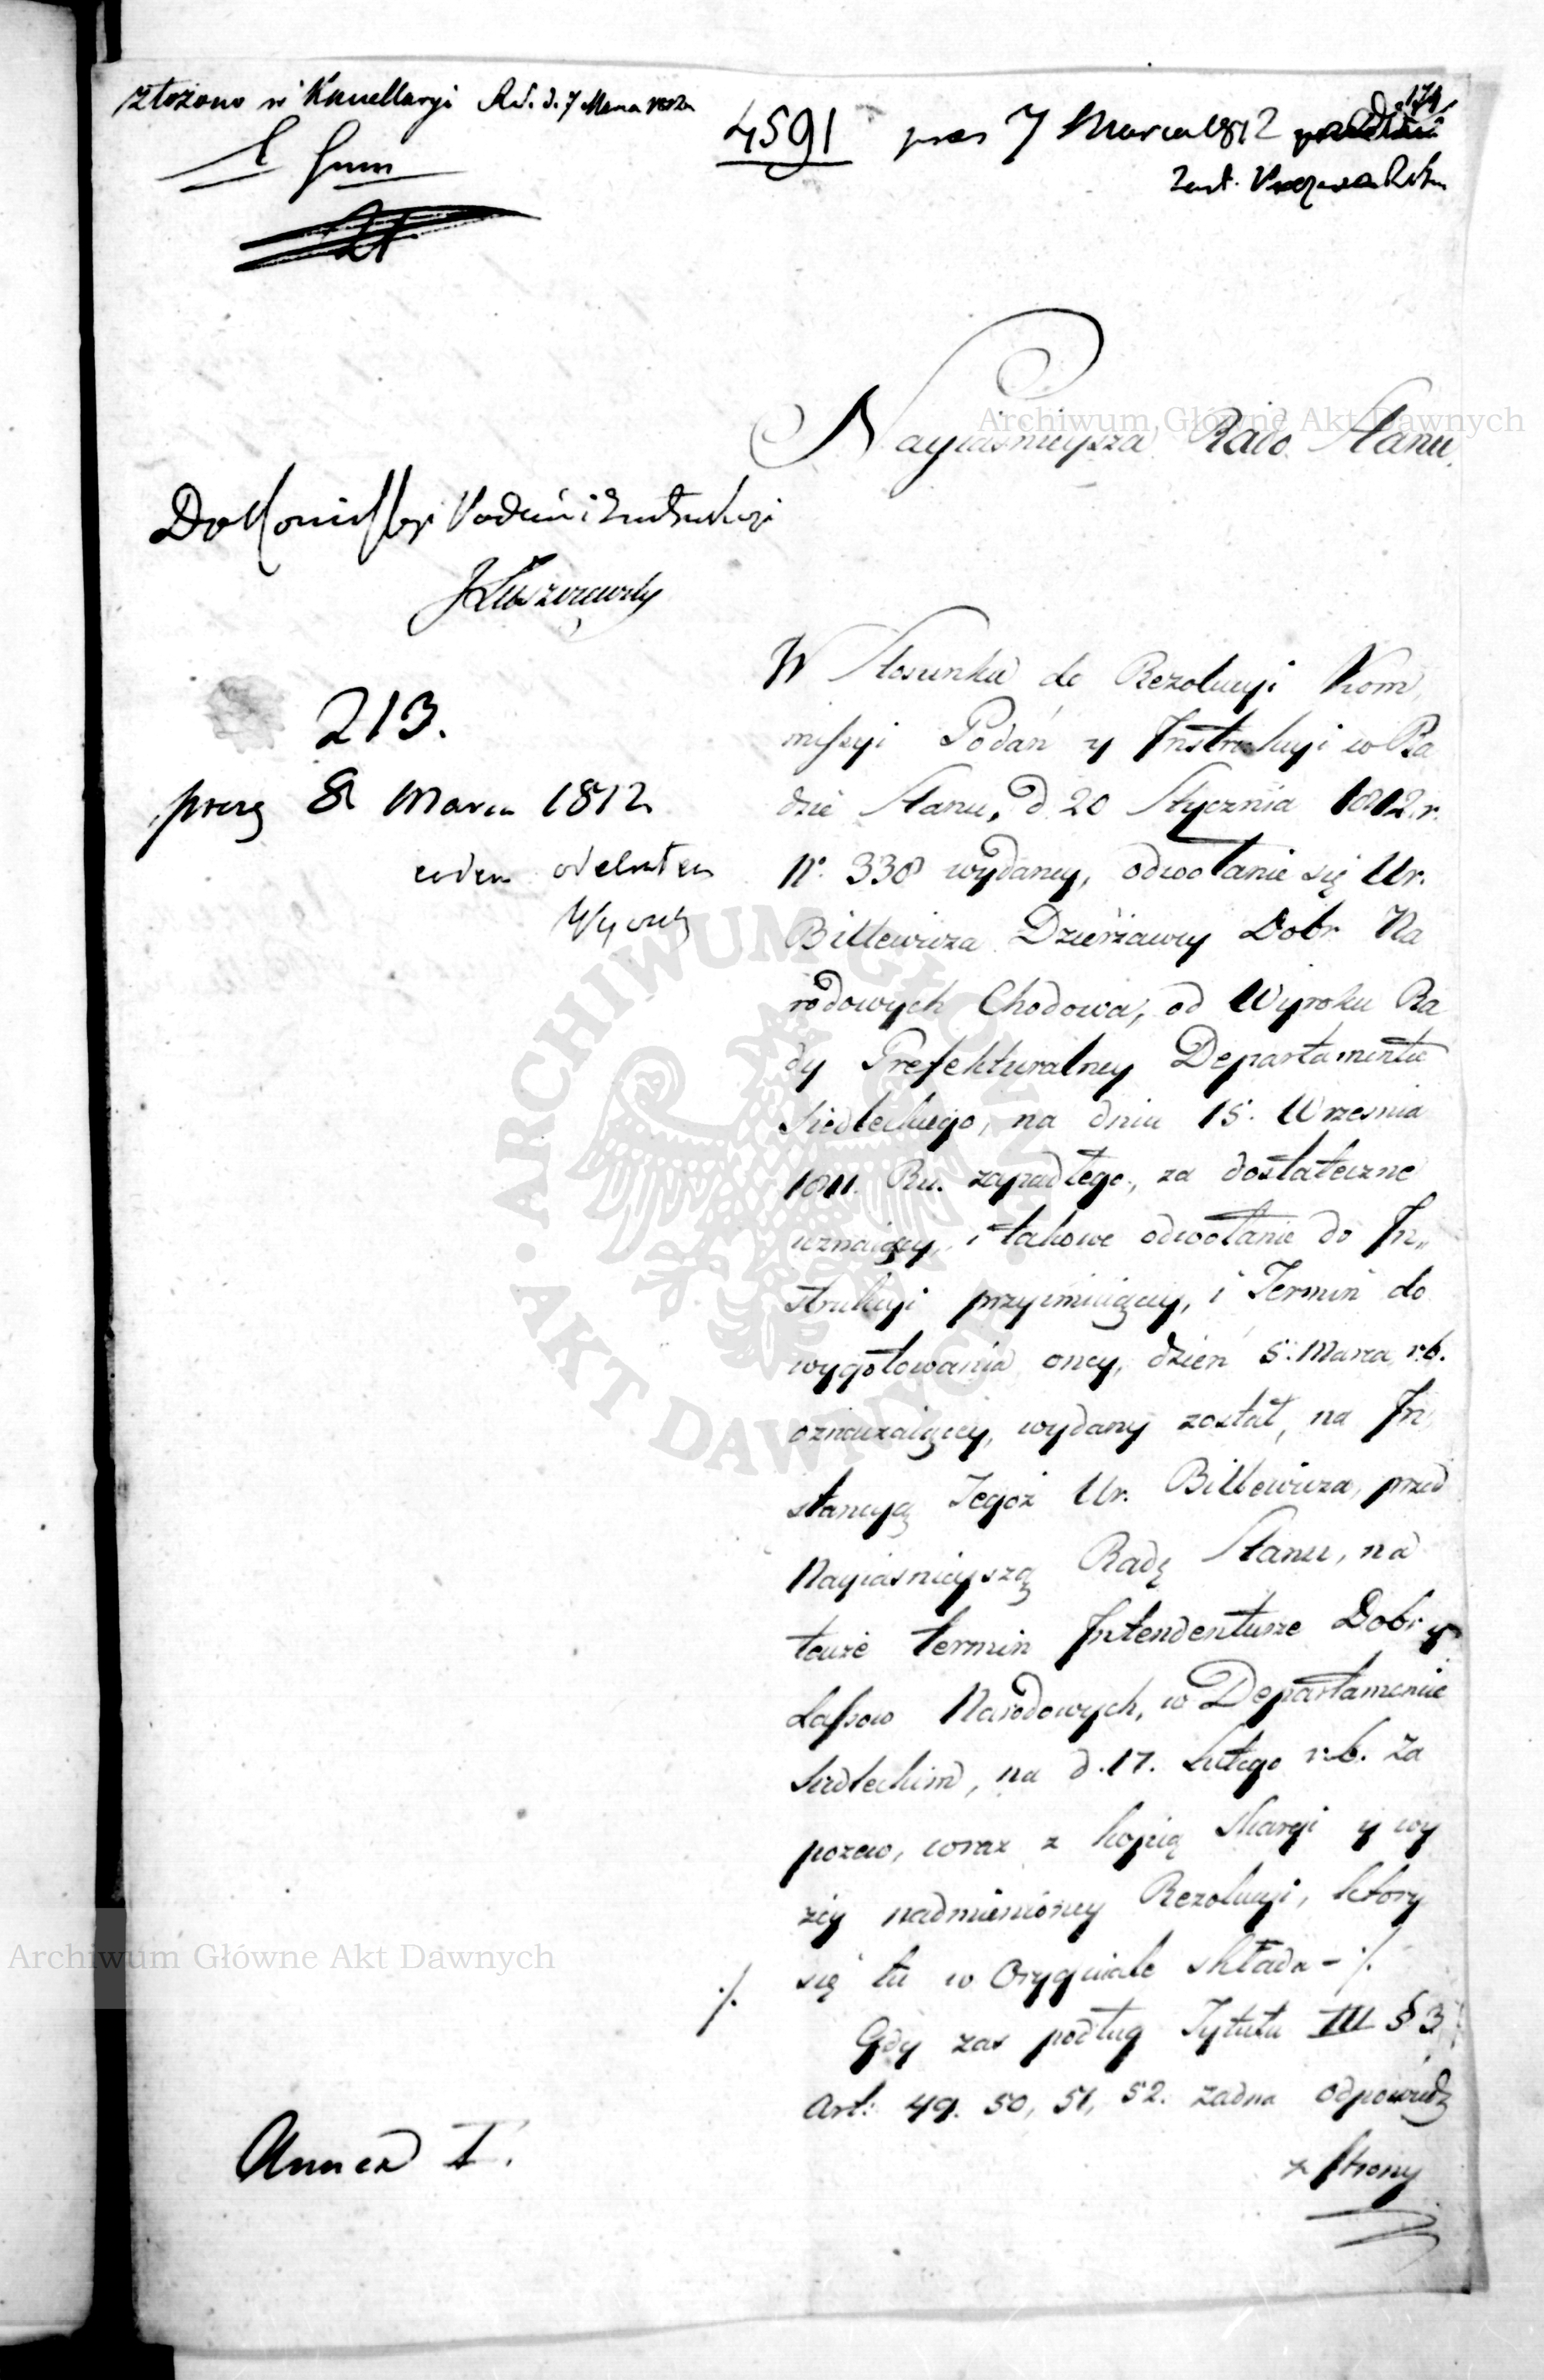 złożono w Kancellaryi R.S. d. 7 Marca 1812
4591 prez 7 Marca 1812
174
Archiwum Główne Akt Dawnych
Nayiaśnieysza Rado Stanu
Do Kommissyi Podań i Instrukcyi
213.
prez 8 Marca 1812
eodem
W Stosunku do Rezolucyi Kom,
missyi Podań y Instrukcyi w Ra
dzie Stanu, d. 20 Stycznia 1812. r.
Nº. 338 wydaney, odwołanie się Ur.
Billewicza Dzierżawcy Dobr Na
rodowych Chodowa, od Wyroku Ra
dy Prefekturalney Departamentu
Siedleckiego, na dniu 15. Wrzesnia
1811. Ru. zapadłego, za dostateczne
uznaiącey, i takowe odwołanie do In„
strukcyi przyimuiącey, i Termin do
wygotowania oney, dzień 5. Marca r.b.
oznaczaiącey, wydany został, na In,
stancyą Tegoż Ur. Billewicza, przed
Nayiasnieyszą Radę Stanu, na
tenże termin Intendenturze Dobr y
Lassow Narodowych, w Departamencie
Siedleckim, na d. 17. Lutego r.b. Za
pozew, wraz z kopią skargi y wy
żey nadmienioney Rezolucyi, ktory
się tu w Oryginale składa - ./.
./.
Gdy zas podług Tytułu III § 3
Art: 49. 50, 51, 52. żadna odpowiedz
Annex I.
z strony
ARCHIWUM GŁÓWNE
AKT DAWNYCH
Archiwum Główne Akt Dawnych